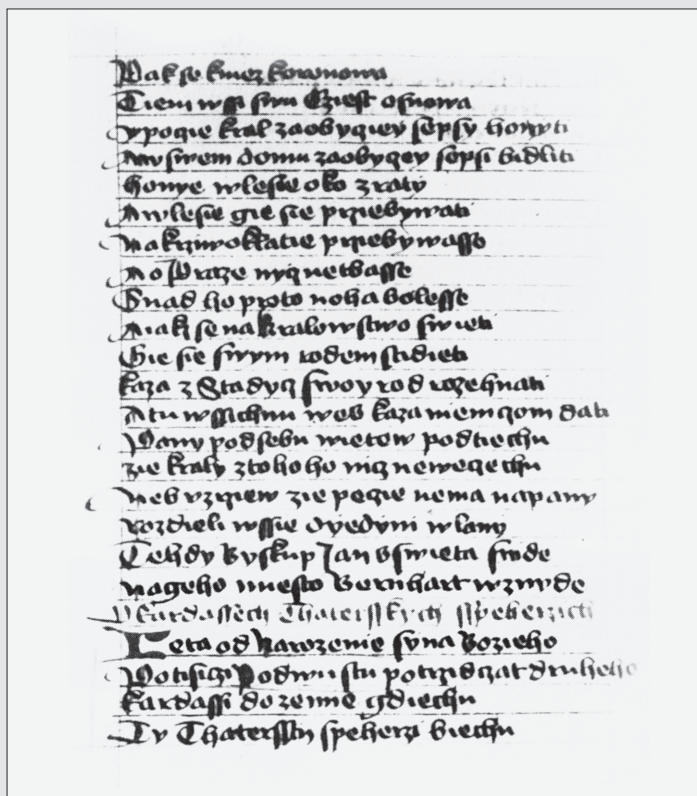 Pak se kniez korunowa
Tiem wssi swu Cziest osnowa
Vpogie kral zaobyqiey sepsy honyti
Aw swem domu zaobyqey sepsi bidliti
honye wlesie oko ztraty
A wlesie gie sie prziebywati
Na krziwoklatie prziebywasse
A o Praze nycz netbasse
Snad ho proto noha bolesse
A iakz se na kralowstwo swieti
Gie sie swym rodem stidieti
kaza z Stadycz swoy rod rozehnati
A tu wssichnu wes kaza niemczom dati
Pany pod sebu nietow podtiechu
zie kraly ztoho ho nicz newegechu
Neb vzrziew zie pogie nema na pany
rozdieli wssie dyedyni w lany
Tehdy Byskup Jan vswieta snide
nageho miesto Bernhart wznyde
O kardassech Thatersskych sspeherzich
Leta od Narozenie syna Bozieho
Po tisiczi Po dwu stu po trzidczat druheho
kardassi do zemie gdiechu
Ty Thatersstii speherzi biechu